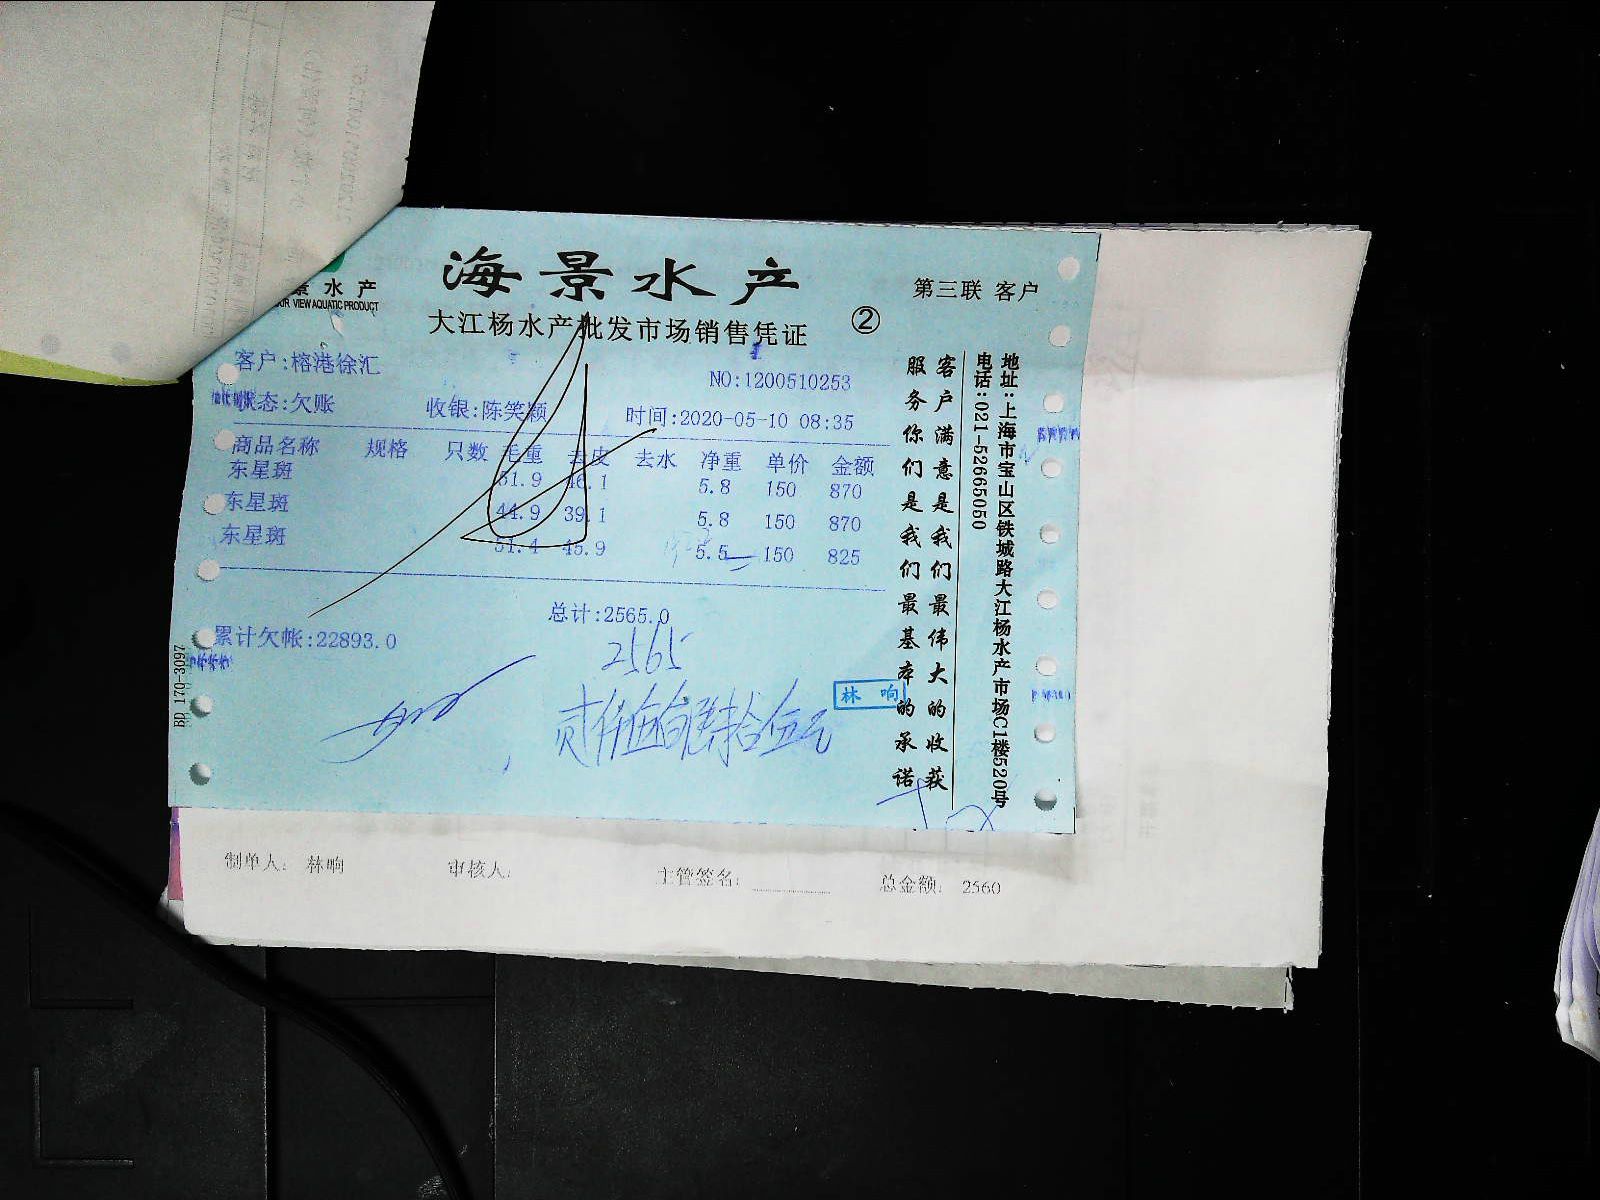 海景水产
大江杨水产批发市场销售凭证
②
第三联 客户
景水产
VIEW AQUATIC PRODUCT
客户:榕港徐汇
NO:1200510253
状态:欠账 收银:陈笑颖 时间:2020-05-10 08:35
商品名称 规格 只数 毛重 去皮 去水 净重 单价 金额
东星斑 51.9 46.1 5.8 150 870
东星斑 44.9 39.1 5.8 150 870
东星斑 51.4 45.9 5.5 150 825
总计:2565.0
累计欠帐:22893.0
2565
贰仟伍佰陆拾伍元
林响
客户满意是我们最伟大的收获
服务你们是我们最基本的承诺
地址:上海市宝山区铁城路大江杨水产市场C1楼520号
电话:021-52665050
BD 170-3097
制单人: 林响 审核人: 主管签名: 总金额: 2560